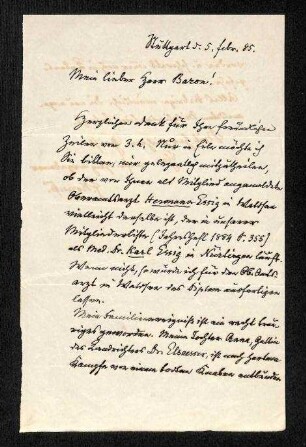 Stuttgart d. 5. Febr. 85.
Mein lieber Herr Baron!
Herzlichen Dank für Ihre freundlichen
Zeilen vom 3. d. Nur in Eile möchte ich
Sie bitten, mir gelegentlich mitzutheilen,
ob der von Ihnen als Mitglied angemeldete
Oberamtsarzt Hermann Essig in Waldsee
vielleicht derselbe ist, der in unserer
Mitgliederliste (Jahresheft 1884 S. 355)
als Med. Dr. Karl Essig in Nürtingen läuft.
Wenn nicht, so würde ich für den Ob.Amts-
arzt in Waldsee das Diplom ausfertigen
lassen.
Mein Familienereigniß ist ein recht trau-
riges geworden. Meine Tochter Anna, Gattin
des Landrichters Dr. Elsaesser, ist nach hartem
Kampfe von einem todten Knaben entbunden